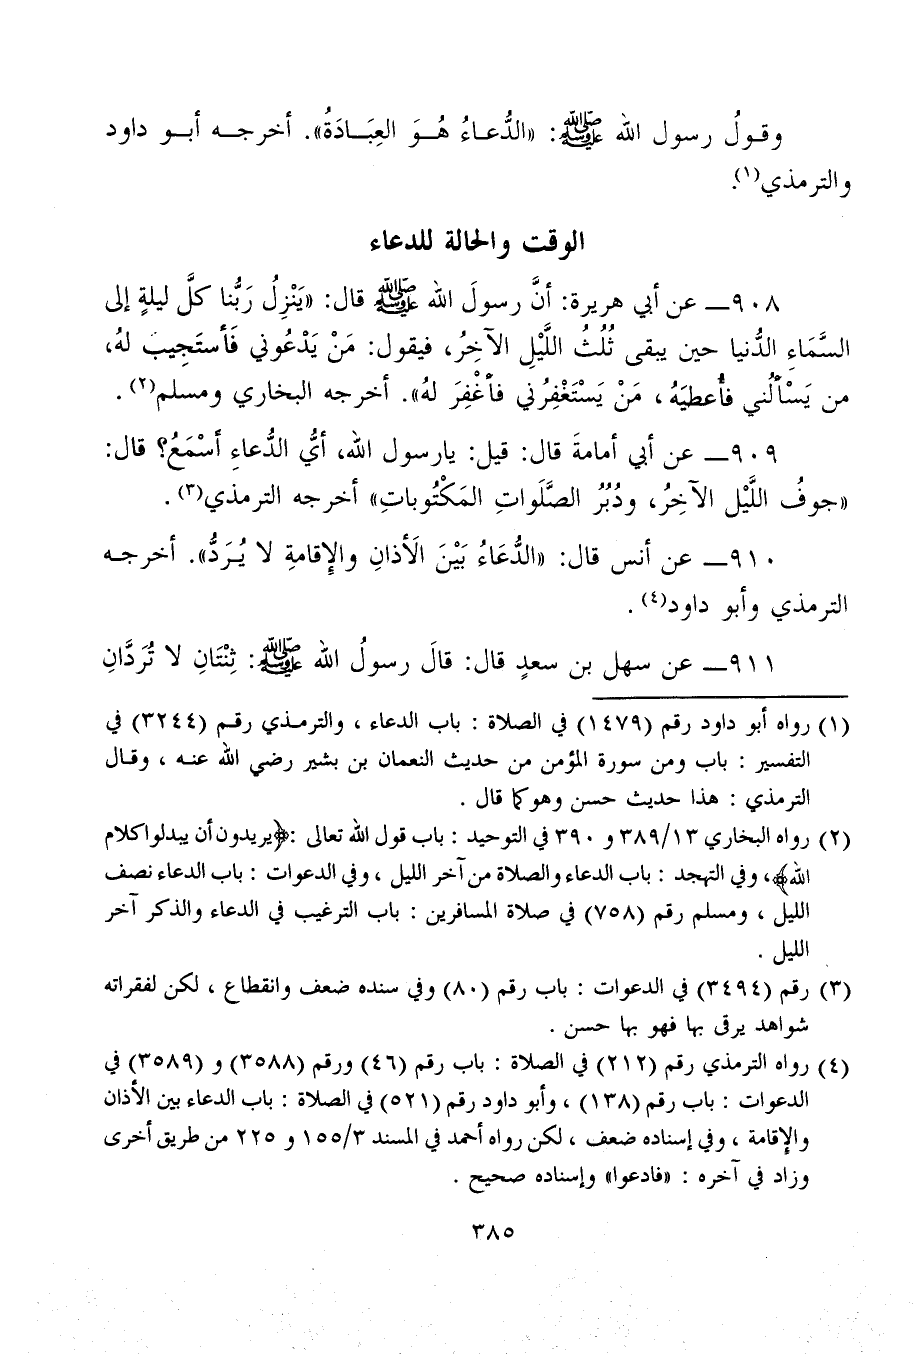 وقـولُ رسول الله ﷺ: «الدُّعـاءُ هُـوَ العِبَـادَةُ». أخرجـه أبـو داود
والترمذي(١).
الوقت والحالة للدعاء
٩٠٨ـ عن أبي هريرة: أنَّ رسولَ الله ﷺ قال: «يَنْزِلُ رَبُّنا كلَّ ليلةٍ إلى
السَّماءِ الدُّنيا حين يبقى ثُلُثُ اللَّيْلِ الآخِرُ، فيقول: مَنْ يَدْعُوني فَأستَجِيبَ لهُ،
من يَسْألُني فأُعطيَهُ، مَنْ يَسْتَغْفِرُني فأغْفِرَ لهُ». أخرجه البخاري ومسلم(٢).
٩٠٩ـ عن أبي أمامةَ قال: قيل: يارسول الله، أيُّ الدُّعاءِ أسْمَعُ؟ قال:
«جوفُ اللَّيْلِ الآخِرُ، ودُبُرُ الصَّلَواتِ المَكْتُوباتِ» أخرجه الترمذي(٣).
٩١٠ـ عن أنس قال: «الدُّعَاءُ بَيْنَ الأَذانِ والإِقامةِ لا يُرَدُّ». أخرجـه
الترمذي وأبو داود(٤).
٩١١ـ عن سهل بن سعدٍ قال: قالَ رسولُ الله ﷺ: ثِنْتَانِ لا تُرَدَّانِ
(١) رواه أبو داود رقم (١٤٧٩) في الصلاة : باب الدعاء ، والترمـذي رقـم (٣٢٤٤) في
التفسير : باب ومن سورة المؤمن من حديث النعمان بن بشير رضي الله عنـه ، وقـال
الترمذي : هذا حديث حسن وهو كما قال .
(٢) رواه البخاري ٣٨٩/١٣ و ٣٩٠ في التوحيد : باب قول الله تعالى :﴿يريدون أن يبدلوا كلام
الله﴾، وفي التهجد : باب الدعاء والصلاة من آخر الليل ، وفي الدعوات : باب الدعاء نصف
الليل ، ومسلم رقم (٧٥٨) في صلاة المسافرين : باب الترغيب في الدعاء والذكر آخر
الليل .
(٣) رقم (٣٤٩٤) في الدعوات : باب رقم (٨٠) وفي سنده ضعف وانقطاع ، لكن لفقراته
شواهد يرقى بها فهو بها حسن .
(٤) رواه الترمذي رقم (٢١٢) في الصلاة : باب رقم (٤٦) ورقم (٣٥٨٨) و (٣٥٨٩) في
الدعوات : باب رقم (١٣٨) ، وأبو داود رقم (٥٢١) في الصلاة : باب الدعاء بين الأذان
والإقامة ، وفي إسناده ضعف ، لكن رواه أحمد في المسند ١٥٥/٣ و ٢٢٥ من طريق أخرى
وزاد في آخره : «فادعوا» وإسناده صحيح .
٣٨٥